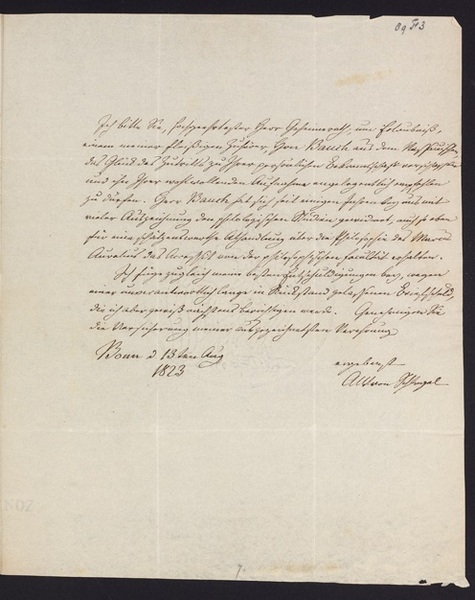 Ich bitte Sie, hochgeehrtester Herr Geheimerath, um Erlaubniß,
einem meiner fleißigen Zuhörer Herrn Bausch aus dem
das Glück des Zutritts zu Ihrer persönlichen Bekanntschaft
und ihn Ihrer wohlwollenden Aufnahme angelegentlich empfehlen
zu dürfen. Herr Bausch hat sich seit einigen Jahren bey uns mit
vieler Auszeichnung den philologischen Studien gewidmet, auch eben
für eine schätzenswerthe Abhandlung über die Philosophie des Marcus
Aurelius das Accessit von der philosophischen Facultät erhalten.
Ich füge zugleich meine besten Entschuldigungen bey, wegen
einer unverantwortlich lange in Rückstand gelassenen Briefschuld,
die ich aber gewiß nächstens berichtigen werde. Genehmigen Sie
die Versicherung meiner ausgezeichnetsten Verehrung
Bonn d 13ten Aug
1823
ergebenst
AW von Schlegel
7.